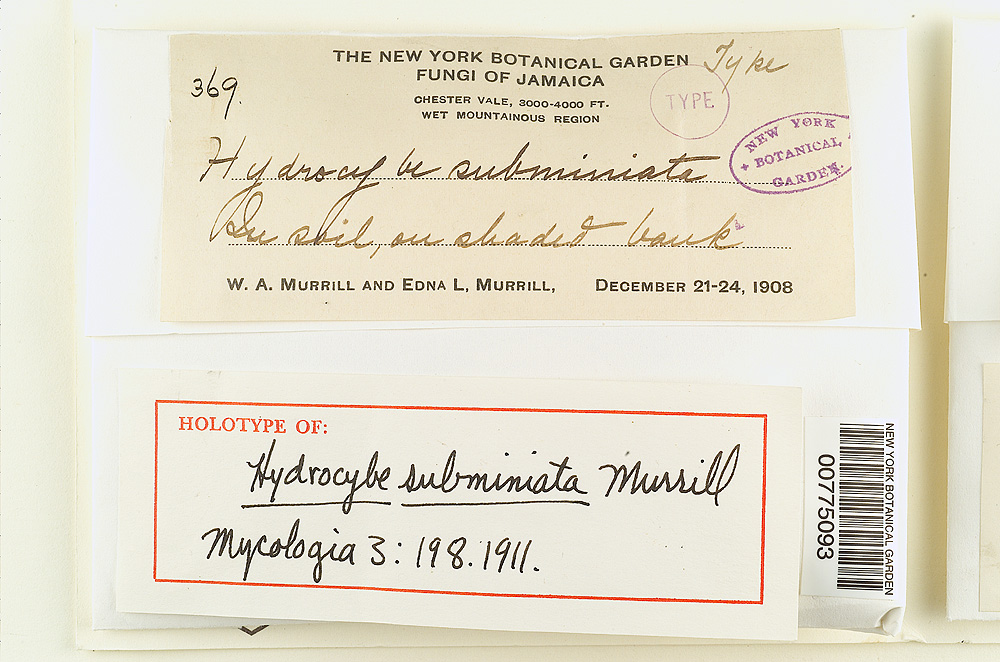 THE NEW YORK BOTANICAL GARDEN Type
FUNGI OF JAMAICA
369.
CHESTER VALE, 3000-4000 FT.
WET MOUNTAINOUS REGION
TYPE
NEW YORK
BOTANICAL
GARDEN.
Hydrocybe subminiata
On soil, on shaded bank
W. A. MURRILL AND EDNA L, MURRILL, DECEMBER 21-24, 1908
HOLOTYPE OF:
Hydrocybe subminiata Murrill
Mycologia 3: 198. 1911.
NEW YORK BOTANICAL GARDEN
00775093